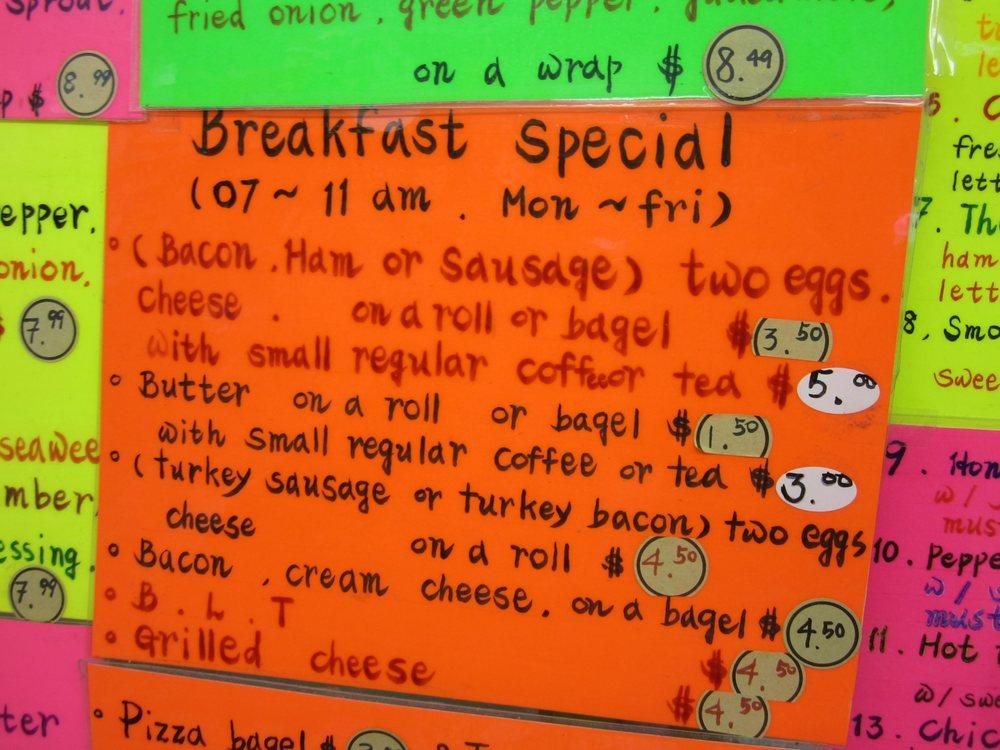 sprout.
$ 8.99
fried onion, green pepper,
on a wrap $ 8.49
epper.
onion.
$ 7.99
seawee
mber
essing.
7.99
ter
Breakfast special
(07 ~ 11 am . Mon ~ fri)
(Bacon. Ham or sausage) two eggs.
cheese . on a roll or bagel $ 3.50
with small regular coffee or tea $ 5.00
Butter on a roll or bagel $ 1.50
with small regular coffee or tea $ 3.00
(turkey sausage or turkey bacon) two eggs
cheese on a roll $ 4.50
Bacon , cream cheese, on a bagel $ 4.50
B . L . T $ 4.50
Grilled cheese $ 4.50
Pizza bagel $
fre
lett
7. Th
ham
lett
8, Smo
swee
9. Hon
w/
mus
10. Peppe
w/
must
11. Hot
w/ swe
13. Chic